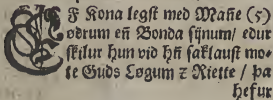 EF Kona legst med Mañe (5)
ødrum eñ Bonda sijnum/ edur
skilur hun vid hñ saklaust mo-
te Guds Løgum ⁊ Riette / þa
hefur